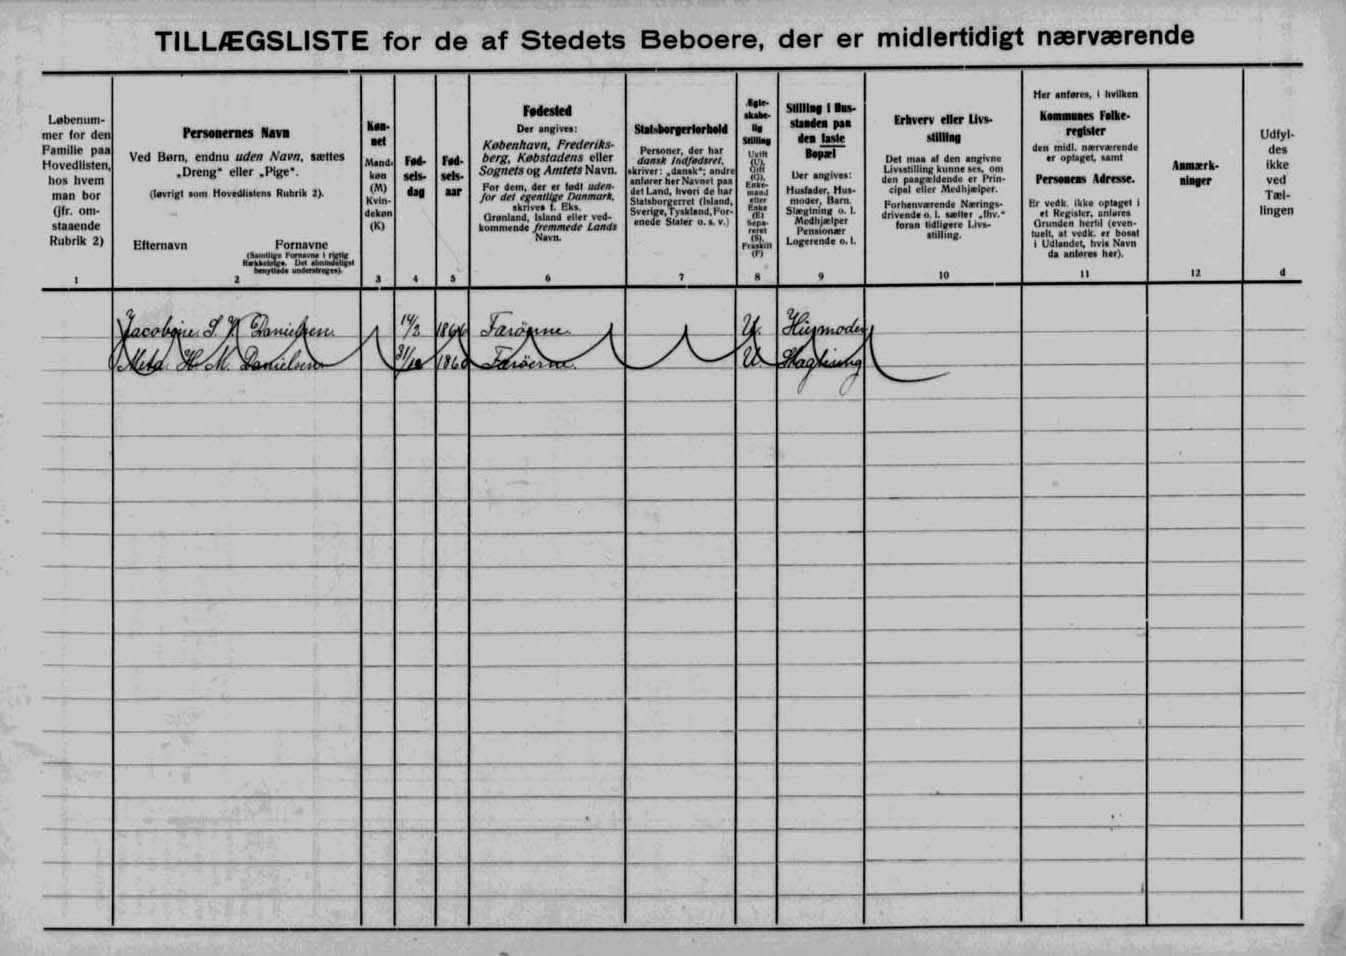 TILLÆGSLISTE for de af Stedets Beboere, der er midlertidigt nærværende
Løbenum-
mer for den
Familie paa
Hovedlisten,
hos hvem
man bor
(jfr. om-
staaende
Rubrik 2)
1
Personernes Navn
Ved Børn, endnu uden Navn, sættes
„Dreng“ eller „Pige“.
(Iøvrigt som Hovedlistens Rubrik 2).
Efternavn Fornavne
(Samtlige Fornavne i rigtig
Rækkefølge. Det almindeligst
benyttede understreges).
2
Køn-
net
Mand-
køn
(M)
Kvin-
dekøn
(K)
3
Fød-
sels-
dag
4
Fød-
sels-
aar
5
Fødested
Der angives:
København, Frederiks-
berg, Købstadens eller
Sognets og Amtets Navn.
For dem, der er født uden-
for det egentlige Danmark,
skrives f. Eks.
Grønland, Island eller ved-
kommende fremmede Lands
Navn.
6
Statsborgerforhold
Personer, der har
dansk Indfødsret,
skriver: „dansk“; andre
anfører her Navnet paa
det Land, hvori de har
Statsborgerret (Island,
Sverige, Tyskland, For-
enede Stater o. s. v.)
7
Ægte-
skabe-
lig
Stilling
Ugift
(U),
Gift
(G),
Enke-
mand
eller
Enke
(E)
Sepa-
reret
(S),
Fraskilt
(F)
8
Stilling i Hus-
standen paa
den faste
Bopæl
Der angives:
Husfader, Hus-
moder, Barn,
Slægtning o. l.
Medhjælper
Pensionær
Logerende o. l.
9
Erhverv eller Livs-
stilling
Det maa af den angivne
Livsstilling kunne ses, om
den paagældende er Prin-
cipal eller Medhjælper.
Forhenværende Nærings-
drivende o. l. sætter „fhv.“
foran tidligere Livs-
stilling.
10
Her anføres, i hvilken
Kommunes Folke-
register
den midl. nærværende
er optaget, samt
Personens Adresse.
Er vedk. ikke optaget i
et Register, anføres
Grunden hertil (even-
tuelt, at vedk. er bosat
i Udlandet, hvis Navn
da anføres her).
11
Anmærk-
ninger
12
Udfyl-
des
ikke
ved
Tæl-
lingen
d
Jacobine S. V. Danielsen. 14/2 Farøerne. U. Husmoder
Meta H. M. Danielsen 31/12 Farøerne. U.